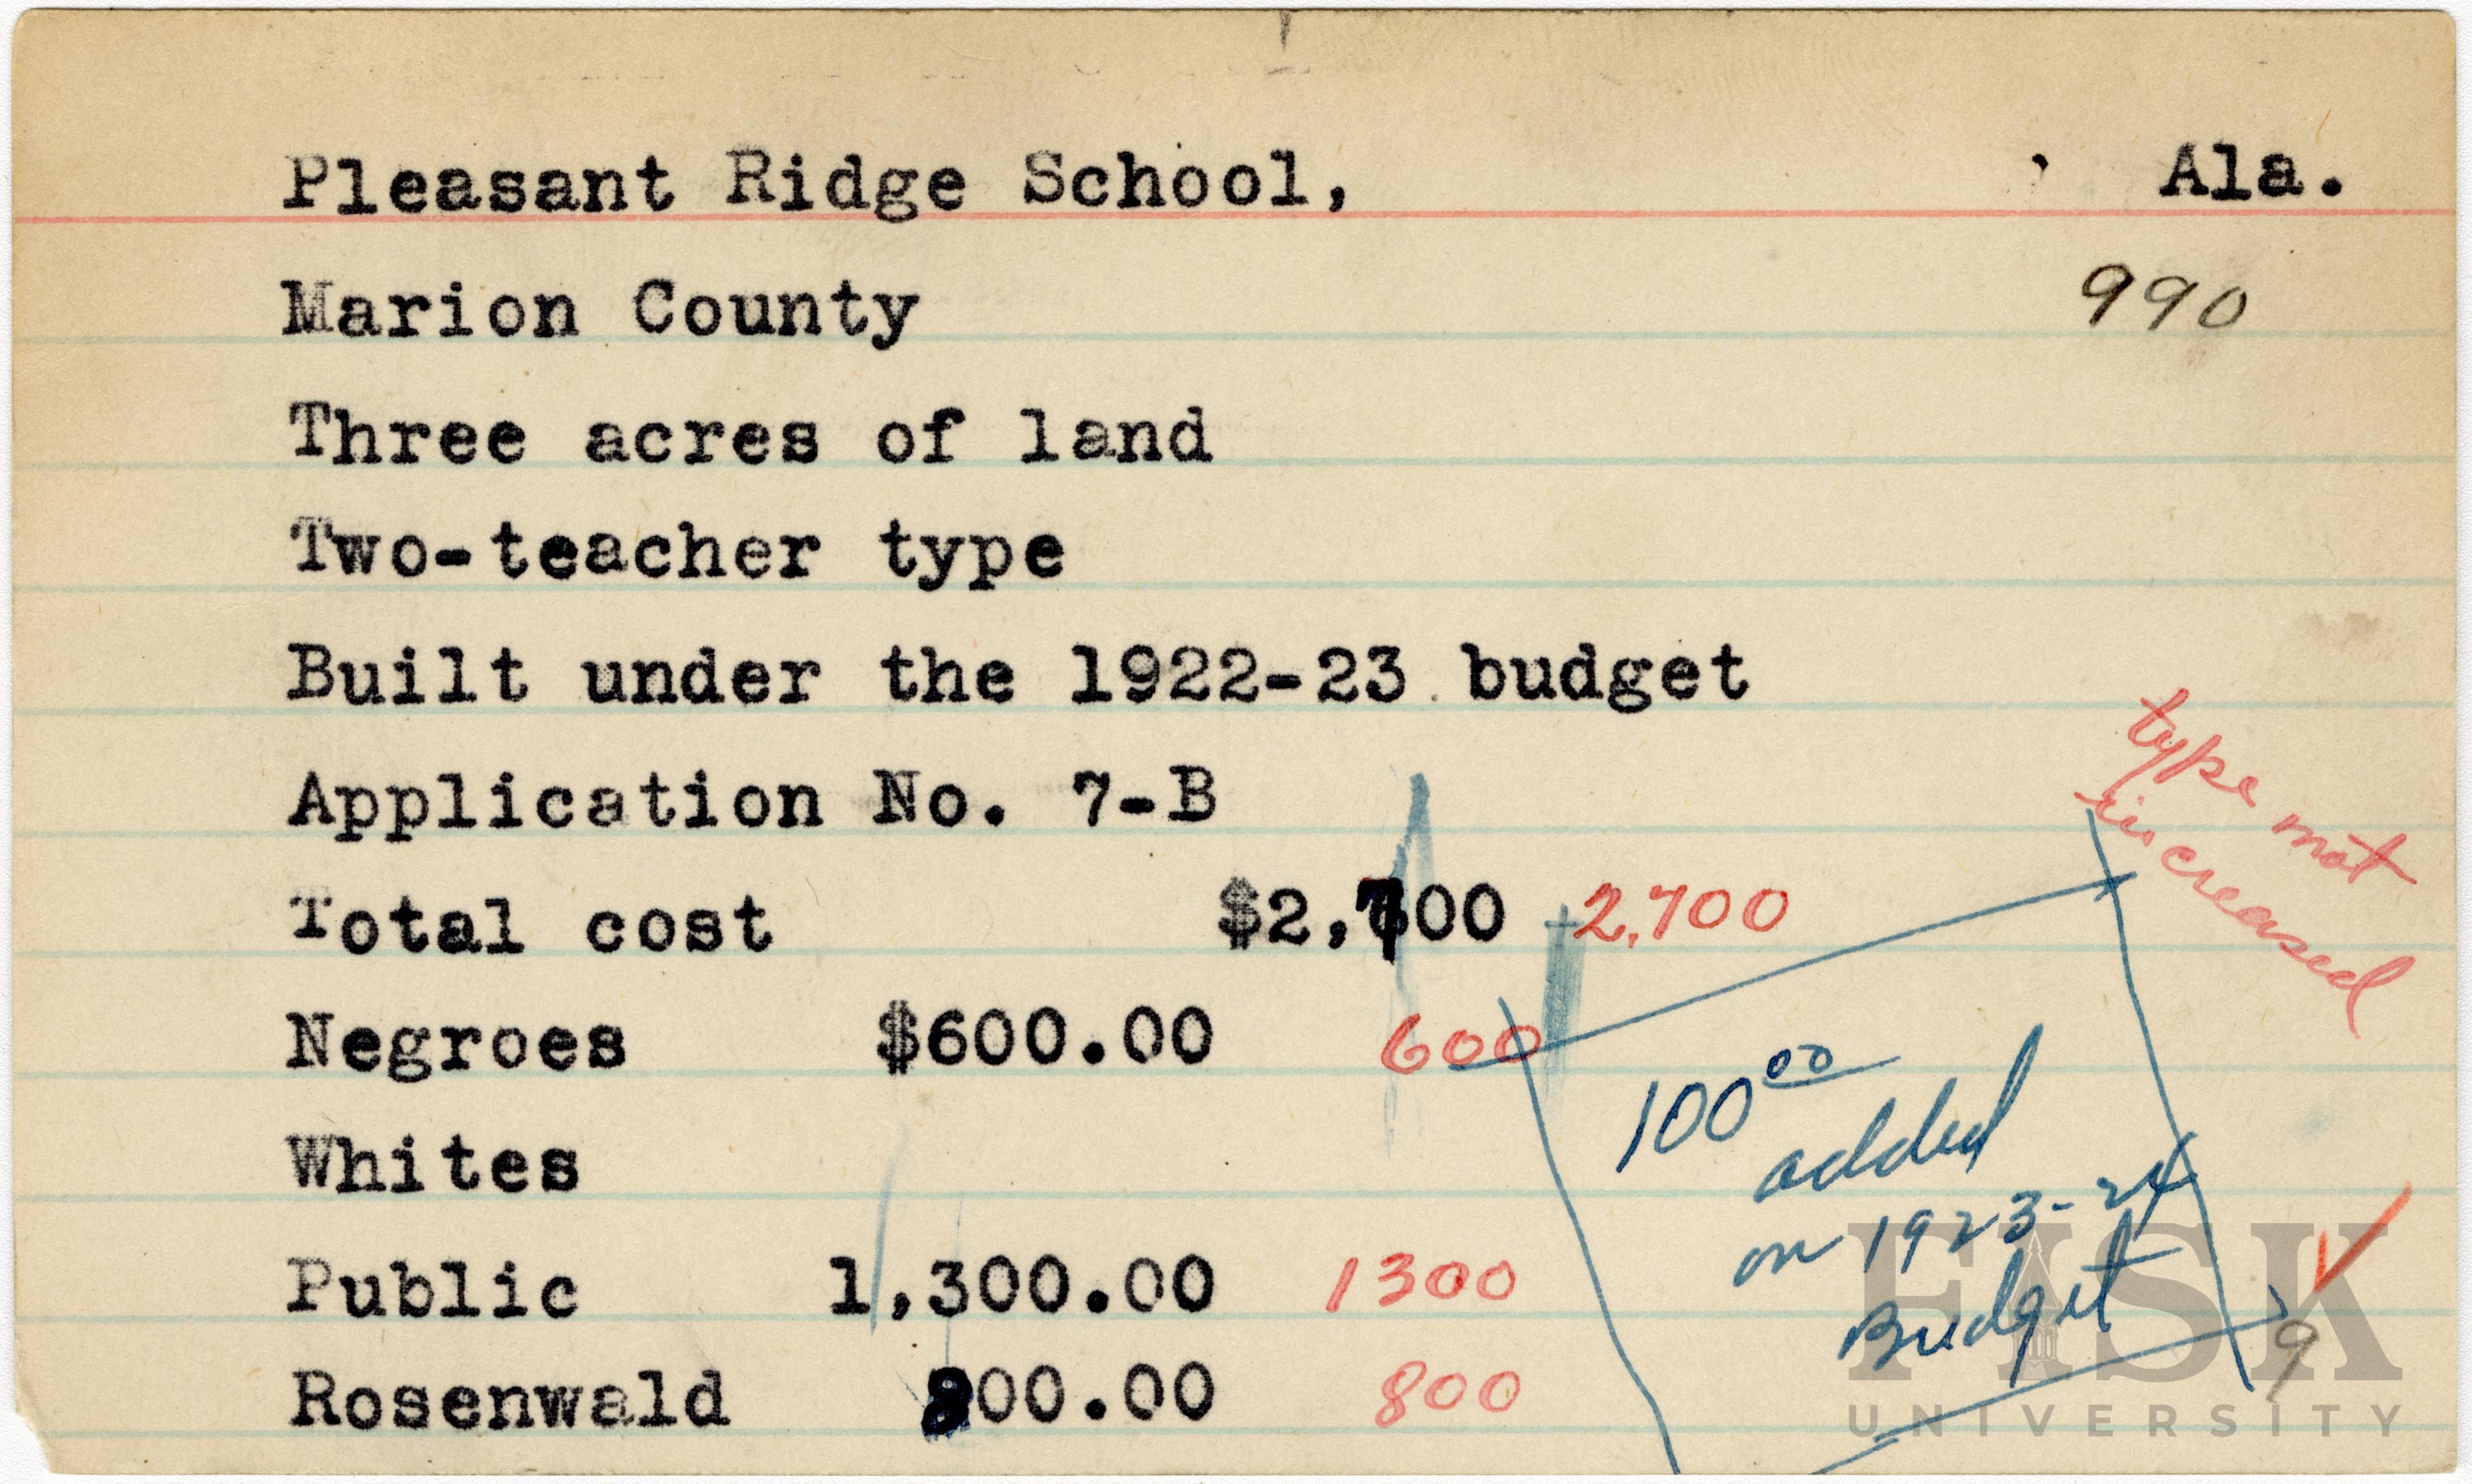 Pleasant Ridge School, Ala.
Marion County 990
Three acres of land
Two-teacher type
Built under the 1922-23 budget
type not
increased
Application No. 7-B
Total cost $2,700 2,700
Negroes $600.00 600
Whites
Public 1,300.00 1300
Rosenwald 800.00 800
100 00
added
on 1923-24
Budget
9
FISK
UNIVERSITY